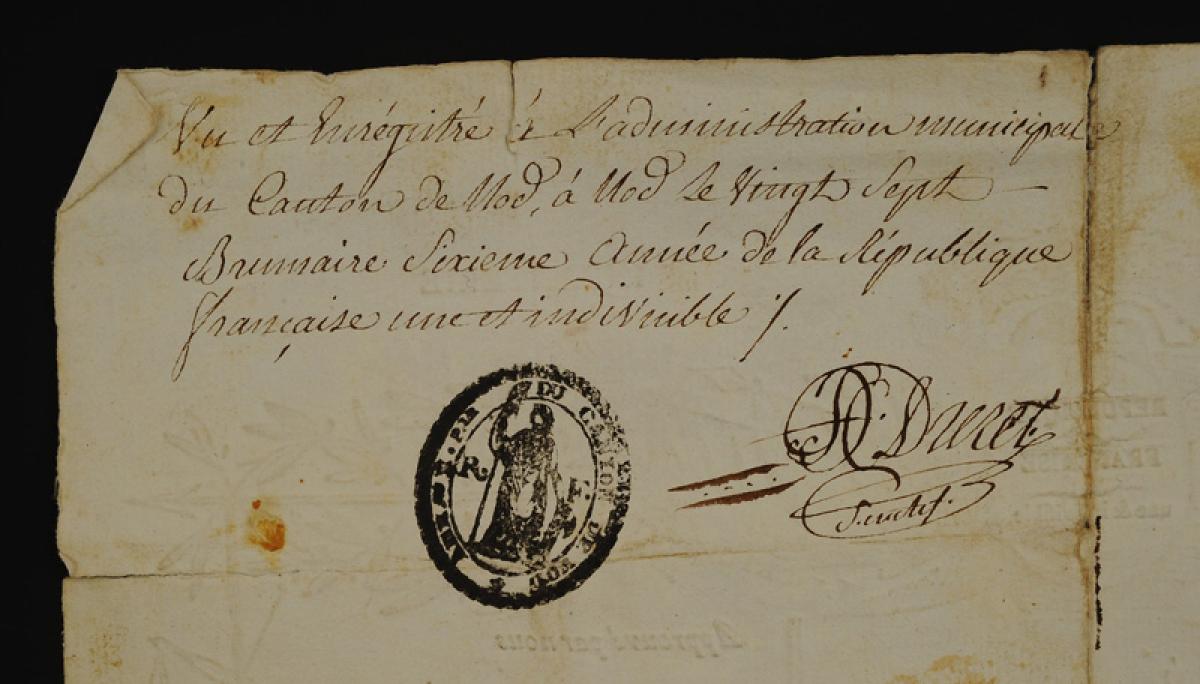 Vu et Enrégistré à L'administration municipale
du Canton de Nod, à Nod le Vingt Sept
Brumaire Sixieme année de la République
française une et indivisible ./.
DU CANTON DE NOD
R. F.
Duret
Approuvé par nous